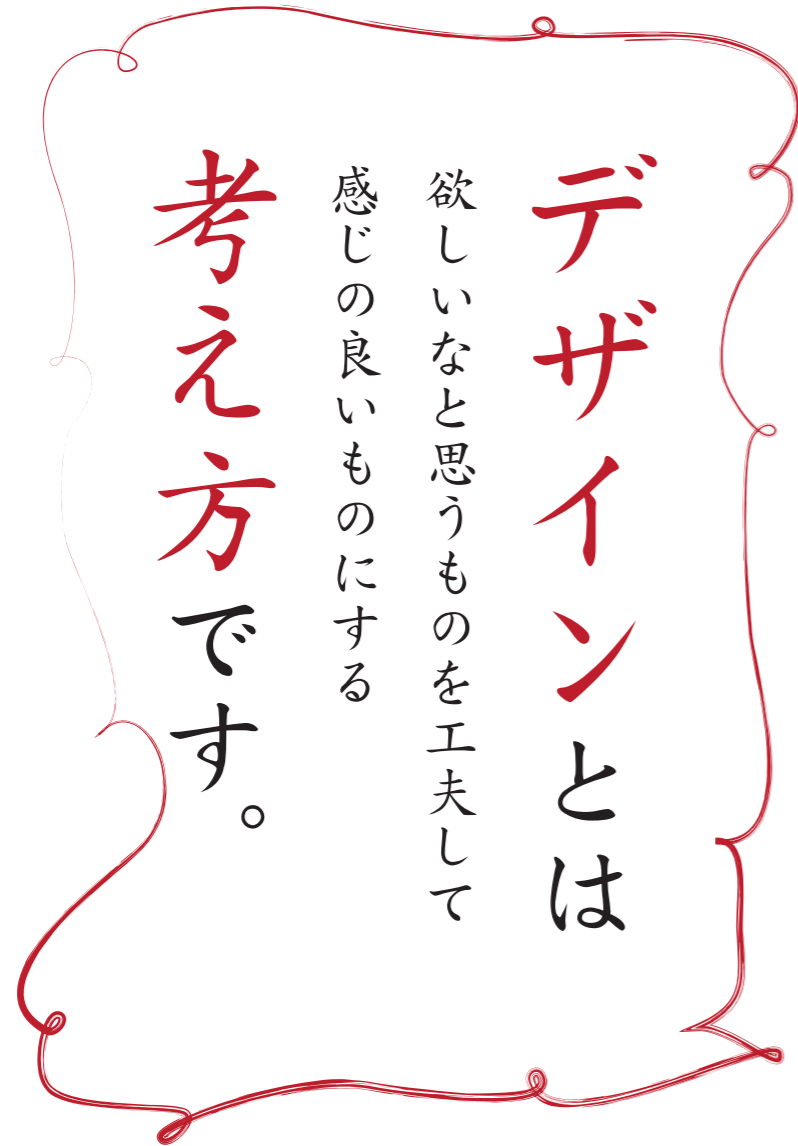 デザインとは
欲しいなと思うものを工夫して
感じの良いものにする
考え方です。